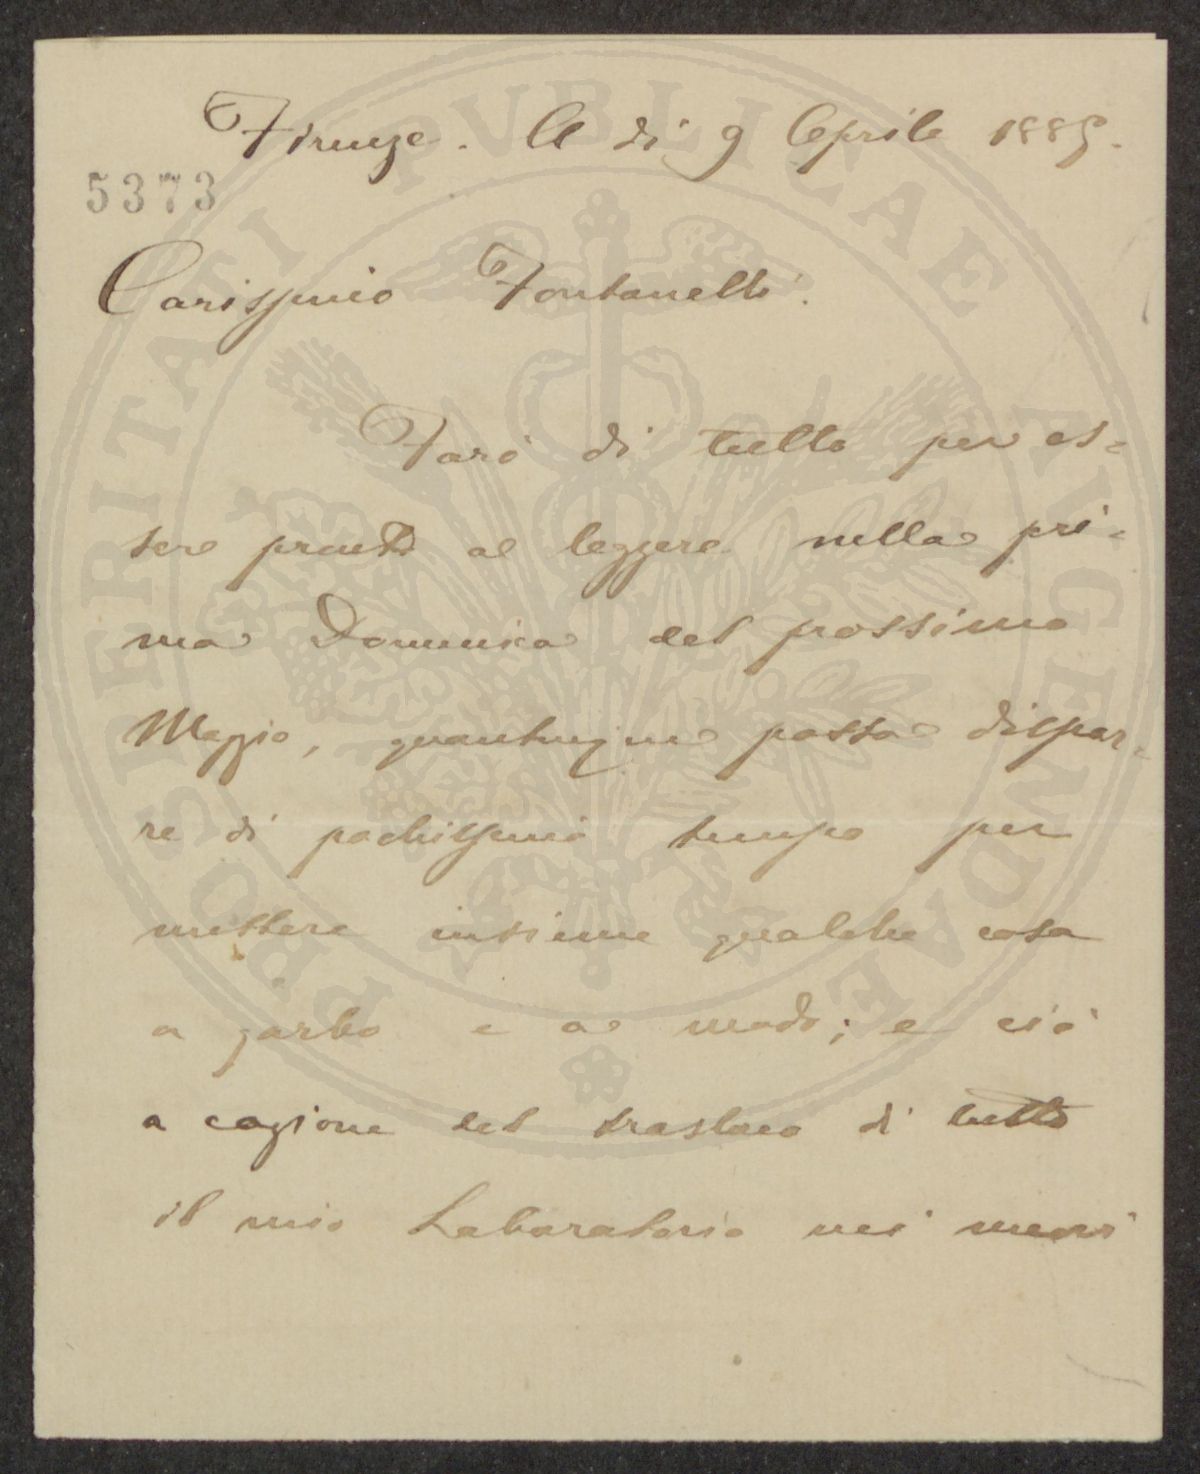 Firenze. A dì 9 Aprile 1885.
5373
Carissimo Fontanelli.
Farò di tutto per es=
sere pronto a leggere nella pri=
ma Domenica del prossimo
Maggio, quantunque possa dispor=
re di pochissimo tempo per
mettere insieme qualche cosa
a garbo e a modo; e ciò
a cagione del trasloco di tutto
il mio Laboratorio nei nuovi
PROSPERITATI PVBLICAE AVGENDAE